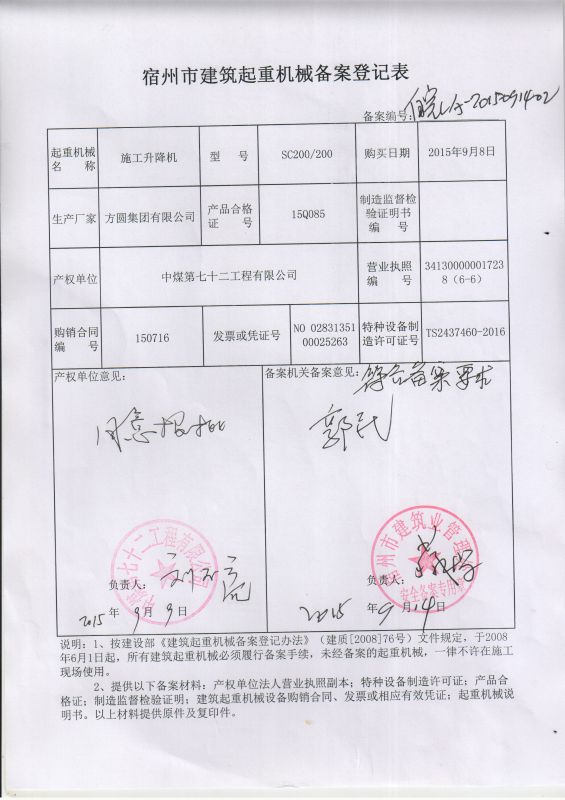 宿州市建筑起重机械备案登记表
备案编号:皖LA-20150914-02
起重机械名 称
施工升降机
型 号
SC200/200
购买日期
2015年9月8日
生产厂家
方圆集团有限公司
产品合格证 号
15Q085
制造监督检验证明书编 号
产权单位
中煤第七十二工程有限公司
营业执照编 号
34130000001723
8（6-6）
购销合同编 号
150716
发票或凭证号
NO 02831351
00025263
特种设备制造许可证号
TS2437460-2016
产权单位意见:
同意报批
备案机关备案意见:
符合备案要求
七十二工程有限公司
宿州市建筑业管理
安全备案专用章
负责人:
2015 年 9月 9日
负责人:
2015 年 9月 14日
说明：1、按建设部《建筑起重机械备案登记办法》（建质[2008]76号）文件规定，于2008
年6月1日起，所有建筑起重机械必须履行备案手续，未经备案的起重机械，一律不许在施工
现场使用。
2、提供以下备案材料：产权单位法人营业执照副本；特种设备制造许可证；产品合
格证；制造监督检验证明；建筑起重机械设备购销合同、发票或相应有效凭证；起重机械说
明书。以上材料提供原件及复印件。